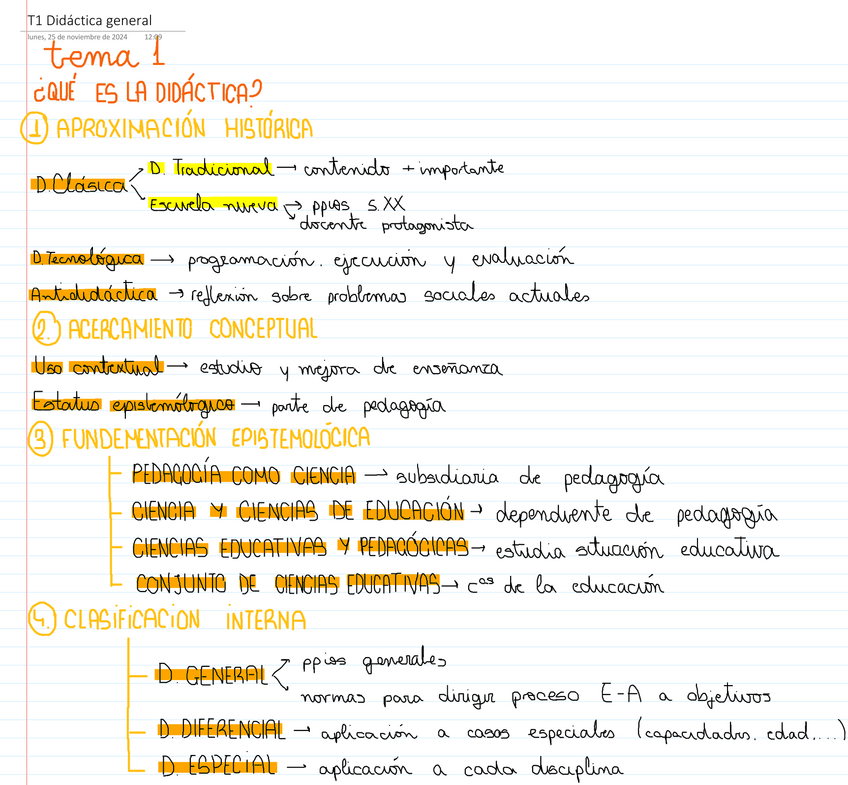 T1 Didáctica general
lunes, 25 de noviembre de 2024 12:09
tema 1
¿QUÉ ES LA DIDÁCTICA?
① APROXIMACIÓN HISTÓRICA
D.Clásica
D. Tradicional → contenido + importante
Escuela nueva → ppios S.XX
docente protagonista
D.Tecnológica → programación. ejecución y evaluación
Antididáctica → reflexión sobre problemas sociales actuales
2. ACERCAMIENTO CONCEPTUAL
Uso contextual → estudio y mejora de enseñanza
Estatus epistemólogico → parte de pedagogía
③ FUNDEMENTACIÓN EPISTEMOLÓGICA
PEDAGOGÍA COMO CIENCIA → subsidiaria de pedagogía
CIENCIA Y CIENCIAS DE EDUCACIÓN → dependiente de pedagogía
CIENCIAS EDUCATIVAS Y PEDAGÓGICAS → estudia situación educativa
CONJUNTO DE CIENCIAS EDUCATIVAS → cas de la educación
4. CLASIFICACION INTERNA
D. GENERAL
ppios generales
normas para dirigir proceso E-A a objetivos
D. DIFERENCIAL → aplicación a casos especiales (capacidades. edad,...)
D. ESPECIAL → aplicación a cada disciplina